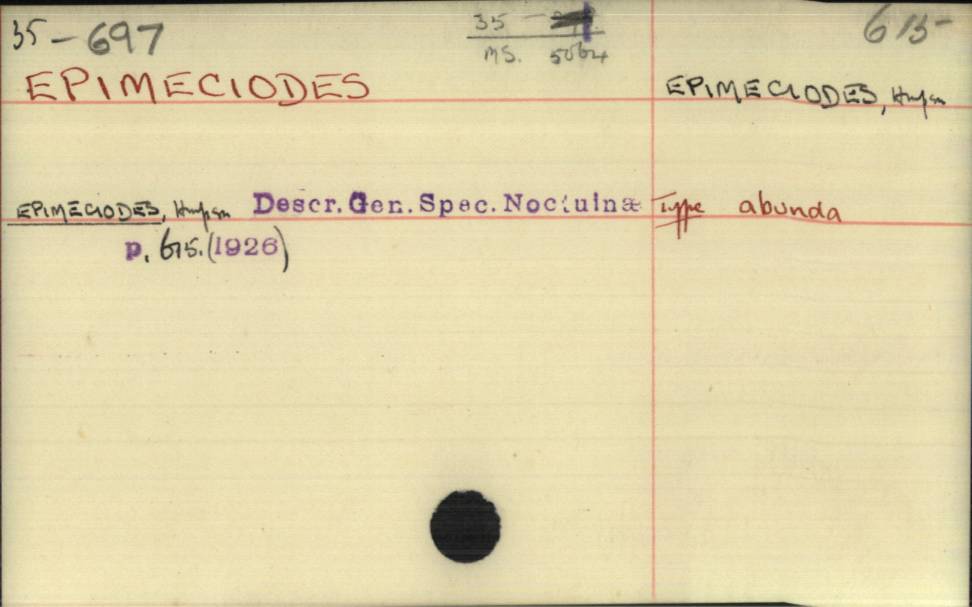 35-697
35 -
MS. 5064
615
EPIMECIODES
EPIMECIODES, Hmpsn
EPIMECIODES, Hmpsn Descr. Gen. Spec. Noctuinæ Type abunda
p. 615. (1926)